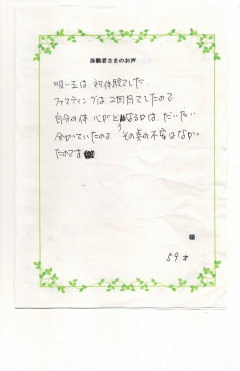 体験者さまのお声
吸い玉は、初体験でした。
ファスティングは、2回目でしたので
自分の体、心がどうなるかは、だいたい
分かっていたので、その楽の不安はなかっ
たのです
様
59才